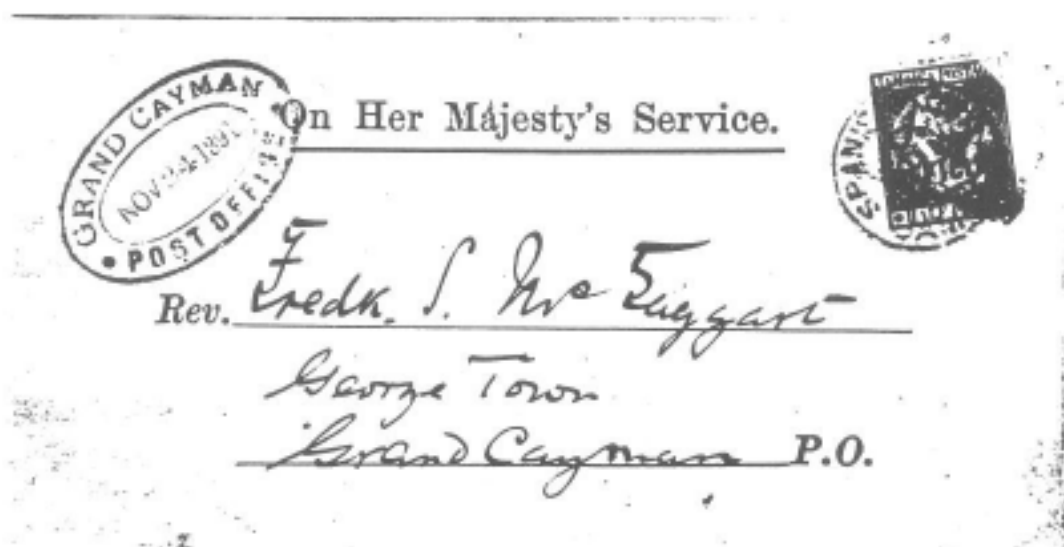 GRAND CAYMAN
POST OFFICE
On Her Májesty's Service.
SPANIS
Rev. Fredk. S. McTaggart
George Town
Grand Cayman P.O.